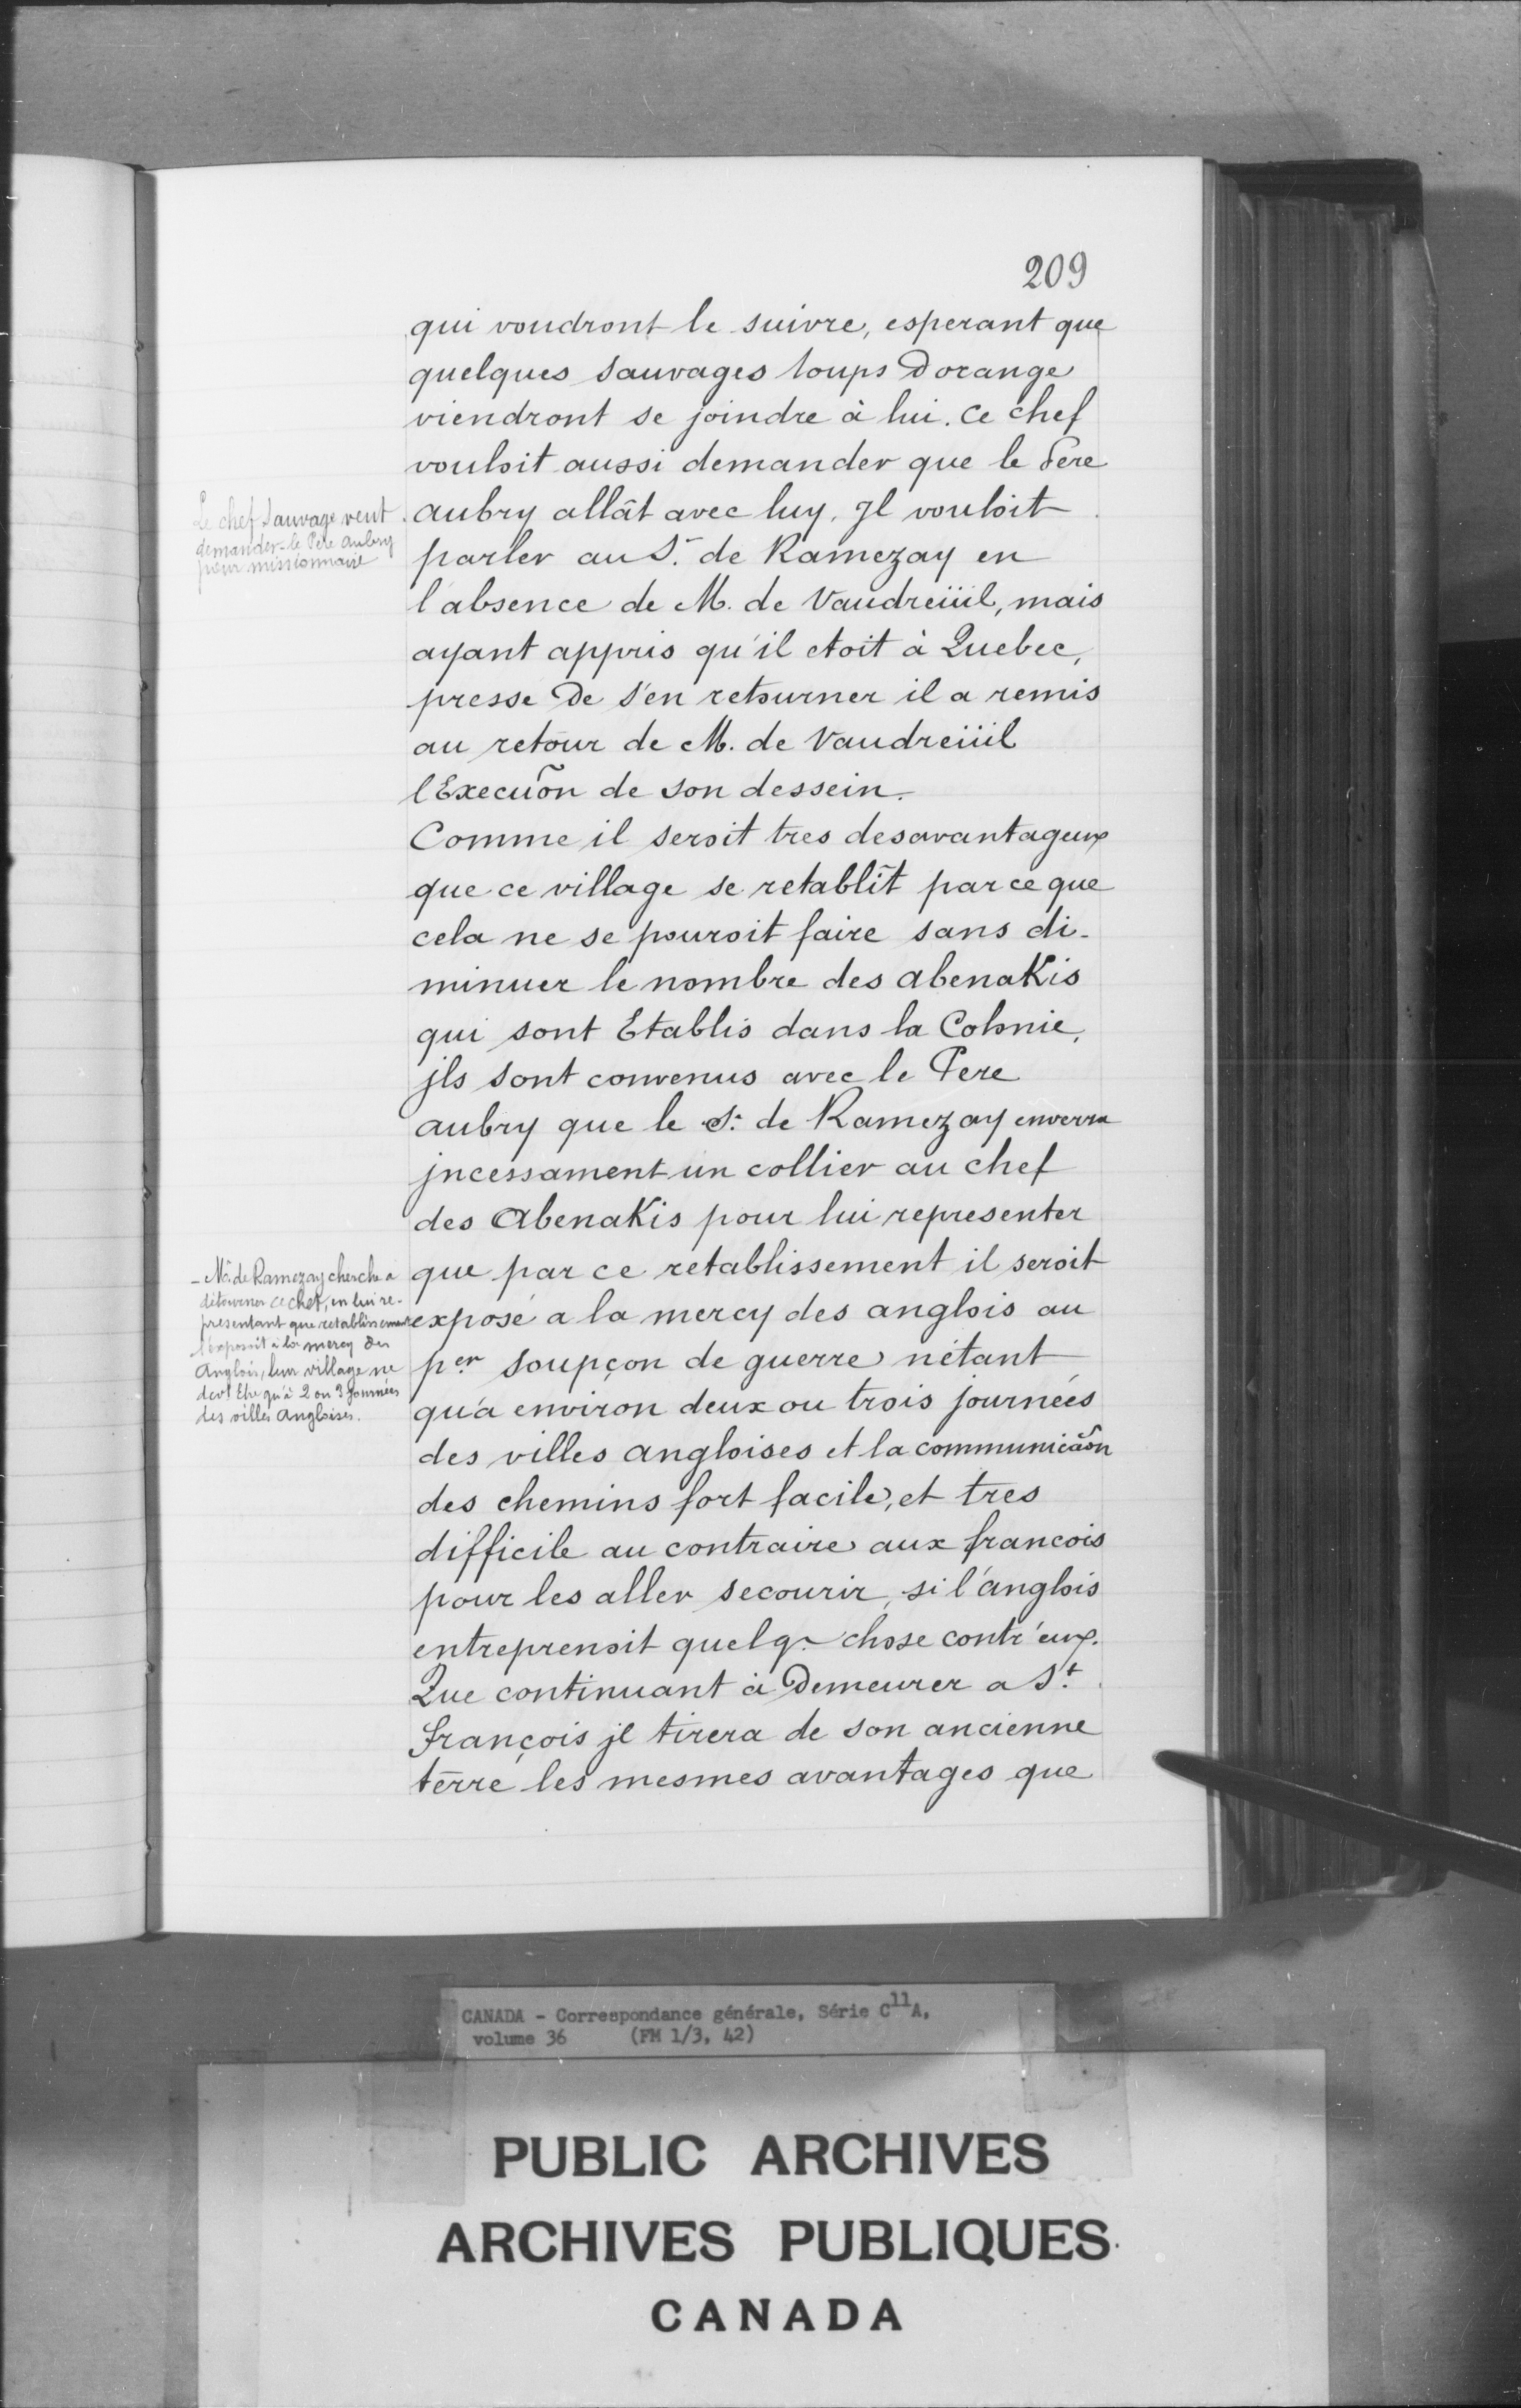 209
qui voudront le suivre, esperant que
quelques sauvages loups Dorange
viendront se joindre à lui. Ce chef
vouloit aussi demander que le Pere
Le chef Sauvage veut
demander le Père Aubry
pour missionnaire
aubry allât avec luy. Jl vouloit
parler au Sr. de Ramezay en
l'absence de M. de Vaudreüil, mais
ayant appris qu'il etoit à Quebec,
presse De s'en retourner il a remis
au retour de M. de Vaudreüil
l'Execuõn de son dessein.
Comme il seroit tres desavantageux
que ce village se retablît parce que
cela ne se pouroit faire sans di-
minuer le nombre des abenaKis
qui sont Etablis dans la Colonie,
jls sont convenus avec le Pere
aubry que le Sr. de Ramezay enverra
jncessament un collier au chef
des AbenaKis pour lui representer
- Mr. de Ramezay cherche a
détourner ce chef, en lui re-
presentant que retablissement
l'exposoit à la mercy des
Anglois, leur village ne
devt Etre qu'à 2 ou 3 journées
des villes Angloises.
que par ce retablissement il seroit
exposé a la mercy des anglois au
per soupçon de guerre n'étant
qu'a environ deux ou trois journées
des villes angloises et la communicãon
des chemins fort facile, et tres
difficile au contraire aux francois
pour les aller secourir, si l'anglois
entreprenoit quelq. chose contr'eux.
Que continuant à Demeurer a St.
françois jl tirera de son ancienne
terre les mesmes avantages que
CANADA - Correspondance générale, Série C11A,
volume 36 (FM 1/3, 42)
PUBLIC ARCHIVES
ARCHIVES PUBLIQUES
CANADA